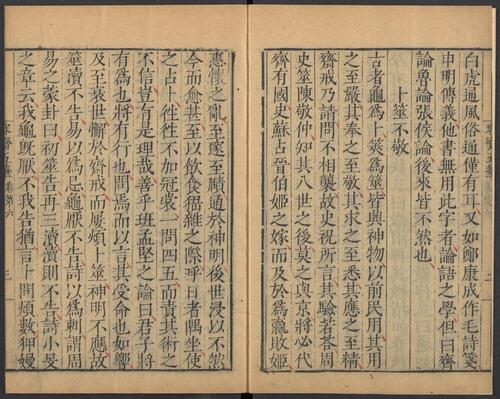 白虎通風俗通僅有耳又如鄭康成作毛詩箋
申明傳義他書無用此字者論語之學但曰齊
論魯論張侯論後來皆不然也
卜筮不敬
古者龜爲卜筴爲筮皆與神物以前民用其用
之至嚴其奉之至敬其求之至悉其應之至精
齋戒乃請問不相襲故史祝所言其驗若荅周
史筮陳敬仲知其八世之後莫之與京將必代
齊有國史蘇占晉伯姬之嫁而及於爲嬴敗姬
惠懷之亂至邃至賾通於神明後世浸以不然
今而愈甚至以飲食猥雜之際呼日者隅坐使
之占卜往往不加冠裳一問四五而責其術之
不信豈有是理哉善乎班孟堅之論曰君子將
有爲也將有行也問焉而以言其受命也如嚮
及至衰世懈於齊戒而屢煩卜筮神明不應故
筮瀆不告易以爲忌龜厭不告詩以爲刺謂周
易之蒙卦曰初筮告再三瀆瀆則不告詩小旻
之章云我龜旣厭不我告猶言卜問煩數狎嫚
卷第六